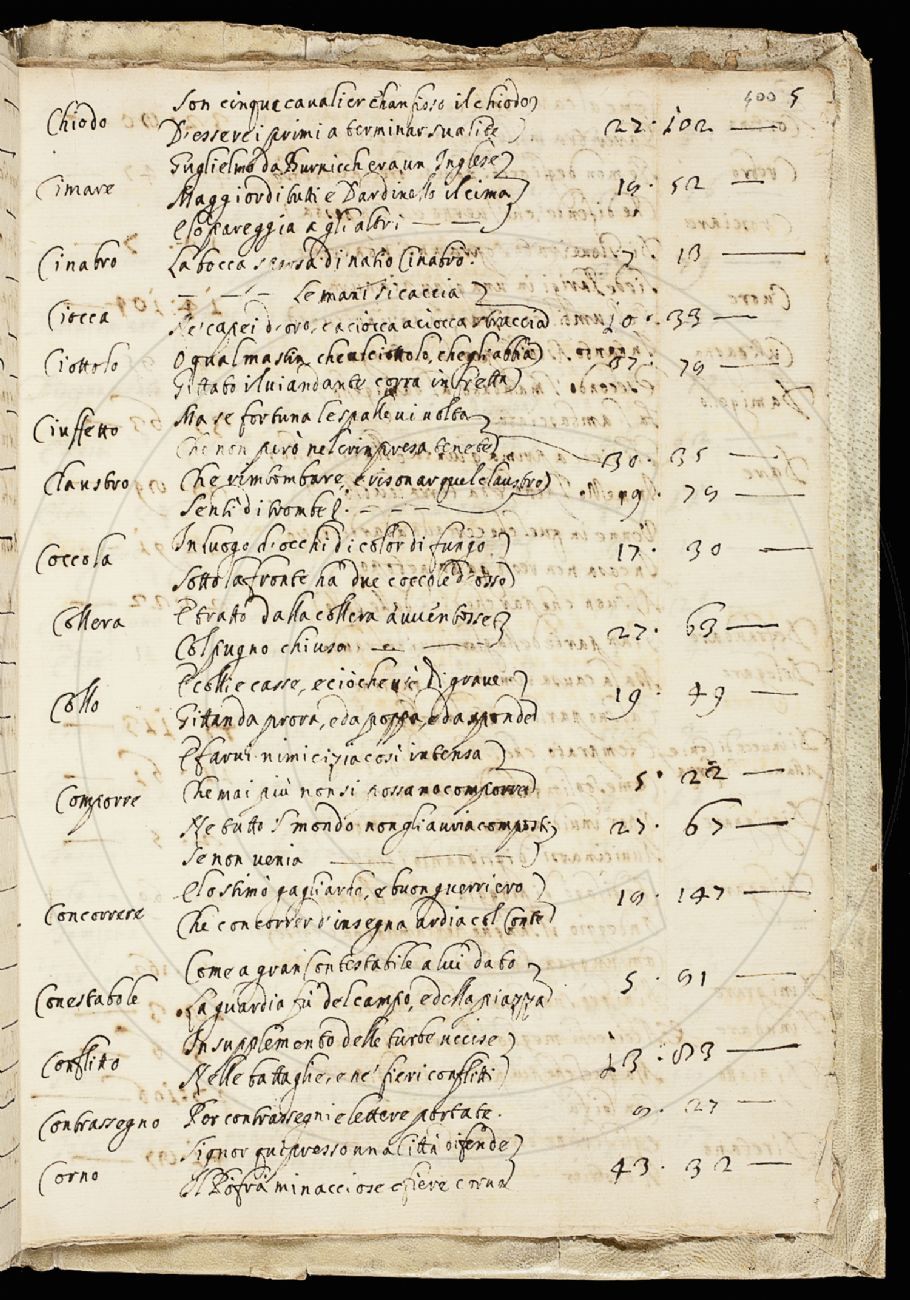 500 5
Chiodo Son cinque cavalier c'han fisso il chiodo
D'essere i primi a terminar sua lite 27. 102
Guglielmo da Burnicch era un Inglese
Cimare Maggior di tutti e Dardinello il cima 18. 52
E lo pareggia a gli altri
Cinabro La bocca sparsa di natio Cinabro. 7. 13
Le mani si caccia
Ciocca Ne' capei d'oro, e a ciocca a ciocca straccia 10. 33
Ciottolo O qual mastin che'l ciottolo, che gli abbia 37. 78
Gittato il viandante corra in fretta
Ciuffetto Ma se fortuna le spalle vi volta
Che non però nel crin presa tenete 30. 35
Claustro Che rimbombare, e risonar quel claustro 9. 78
Sentì di trombe
Coccola In luogo d'occhi di color di fungo 17. 30
Sotto la fronte ha due coccole d'osso
Collera E tratto dalla collera avventosse 27. 63
Col pugno chiuso
Collo E colli e casse, e ciò che v'è di grave 19. 49
Gittan da prora, e da poppa, e da sponde
E farvi nimicizia così intensa
Comporre Che mai più non si possano comporre 5. 22
Ne tutto 'l mondo non gli avria composti 27. 67
Se non venia
E lo stimò gagliardo, e buon guerriero 19. 147
Concorrere Che concorrer d'insegna ardia col Conte
Come a gran Contestabile a lui dato
Conestabole La guardia fù del campo, e della piazza 5. 81
In supplemento delle turbe uccise
Conflitto Nelle battaglie, e ne' fieri conflitti 13. 83
Contrassegno Per contrassegni e lettere portate. 9. 27
Signor quì presso una Città difende
Corno Il Pò frà minacciose e fiere corna 43. 32